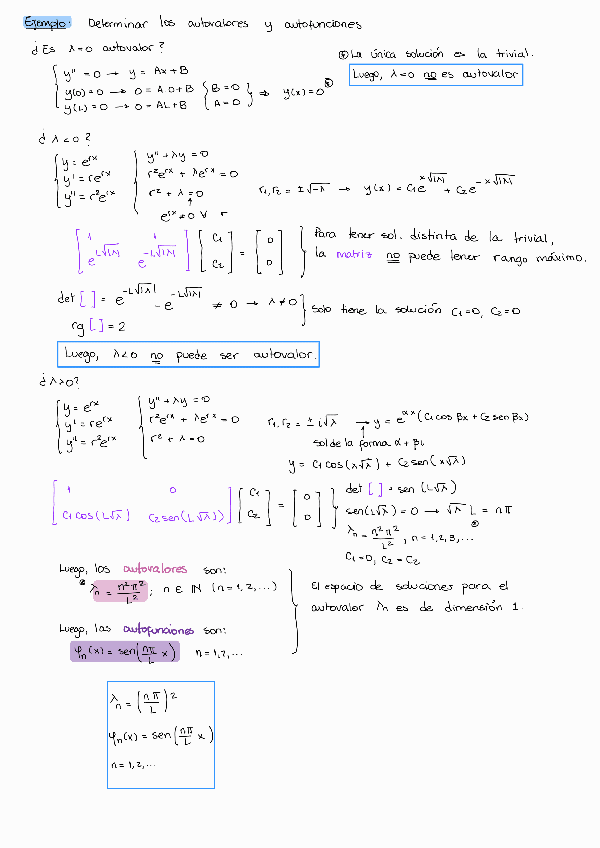 Ejemplo: Determinar los autovalores y autofunciones
¿Es λ=0 autovalor?
y'' = 0 → y = Ax+B
y(0) = 0 → 0 = A·0+B { B=0
y(L) = 0 → 0 = AL+B { A=0 ⇒ y(x)=0 ⊛
⊛ La única solución es la trivial.
Luego, λ=0 no es autovalor
¿λ<0?
y = e^{rx}
y' = re^{rx}
y'' = r²e^{rx}
y'' + λy = 0
r²e^{rx} + λe^{rx} = 0
r² + λ = 0
↑
e^{rx} ≠ 0 ∀ r
r₁, r₂ = ±√-λ → y(x) = C₁e^{x√|λ|} + C₂e^{-x√|λ|}
[ 1 1 ; e^{L√|λ|} e^{-L√|λ|} ] [ C₁ ; C₂ ] = [ 0 ; 0 ]
Para tener sol. distinta de la trivial,
la matriz no puede tener rango máximo.
det [ ] = e^{-L√|λ|} - e^{-L√|λ|} ≠ 0 → λ≠0
rg [ ] = 2
Solo tiene la solución C₁=0, C₂=0
Luego, λ<0 no puede ser autovalor.
¿λ>0?
y = e^{rx}
y' = re^{rx}
y'' = r²e^{rx}
y'' + λy = 0
r²e^{rx} + λe^{rx} = 0
r² + λ = 0
r₁, r₂ = ± i√λ → y = e^{αx} (C₁cos βx + C₂ sen βx)
sol de la forma α + βi
y = C₁ cos(x√λ) + C₂ sen(x√λ)
[ 1 0 ; C₁ cos(L√λ) C₂ sen(L√λ) ] [ C₁ ; C₂ ] = [ 0 ; 0 ]
det [ ] = sen (L√λ)
sen(L√λ) = 0 → √λ L = nπ
λₙ = n²π²/L² , n = 1,2,3,...
C₁=0, C₂ = C₂
Luego, los autovalores son:
λₙ = n²π²/L² ; n ∈ ℕ (n = 1, 2, ...)
El espacio de soluciones para el
autovalor λₙ es de dimensión 1.
Luego, las autofunciones son:
φₙ(x) = sen(nπ/L x) n = 1,2,...
λₙ = (nπ/L)²
φₙ(x) = sen(nπ/L x)
n = 1, 2, ...